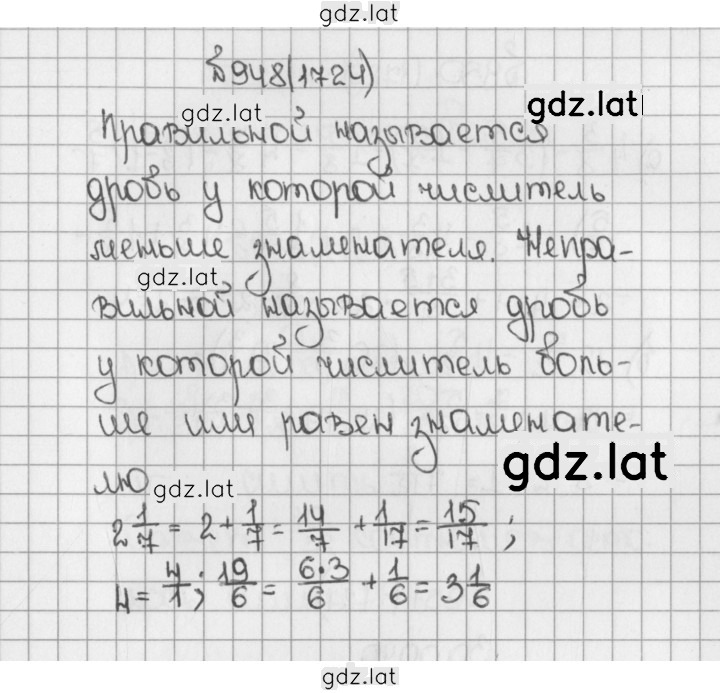 gdz.lat
№948(1724)
gdz.lat
gdz.lat
Правильной называется
дробь у которой числитель
меньше знаменателя. Непра-
gdz.lat
вильной называется дробь
у которой числитель боль-
ше или равен знаменате-
gdz.lat
лю
gdz.lat
2 1/7 = 2 + 1/7 = 14/7 + 1/17 = 15/17 ;
4 = 4/1 ; 19/6 = 6·3/6 + 1/6 = 3 1/6
gdz.lat